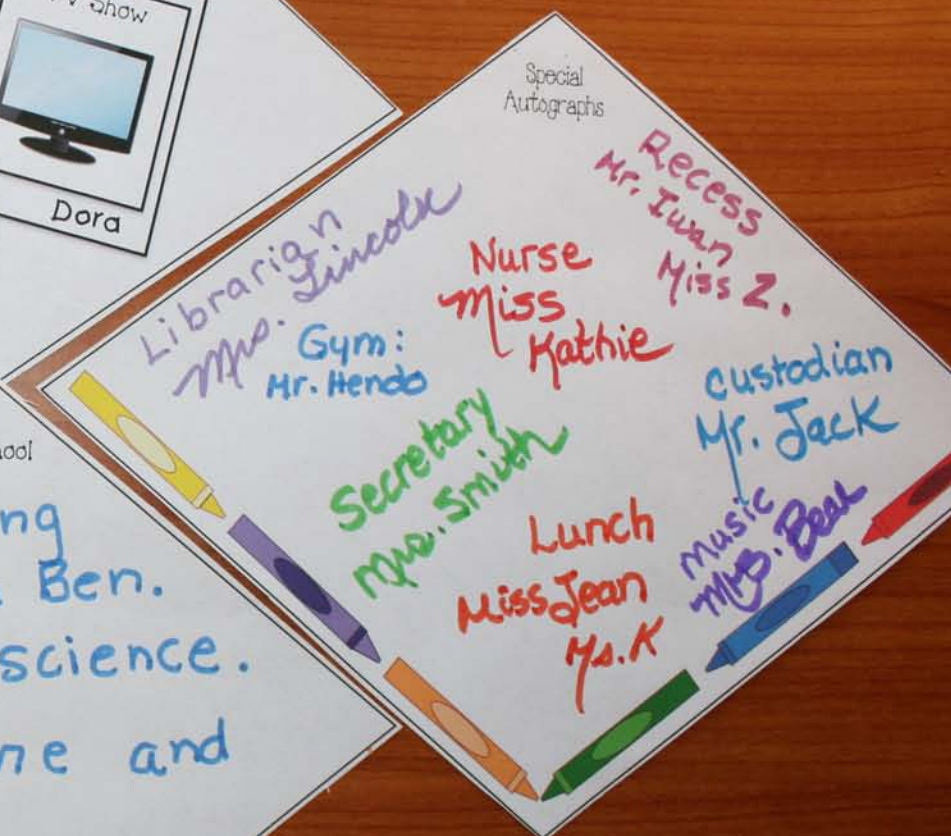 Show
Dora
Special
Autographs
Librarian
Mrs. Lincoln
Recess
Mr. Iwan
Miss Z.
Nurse
Miss
Kathie
Gym:
Mr. Hendo
custodian
Mr. Jack
Secretary
Mrs. Smith
Lunch
Miss Jean
Ms. K
music
Mrs. Beal
ool
ng
Ben.
science.
ne and